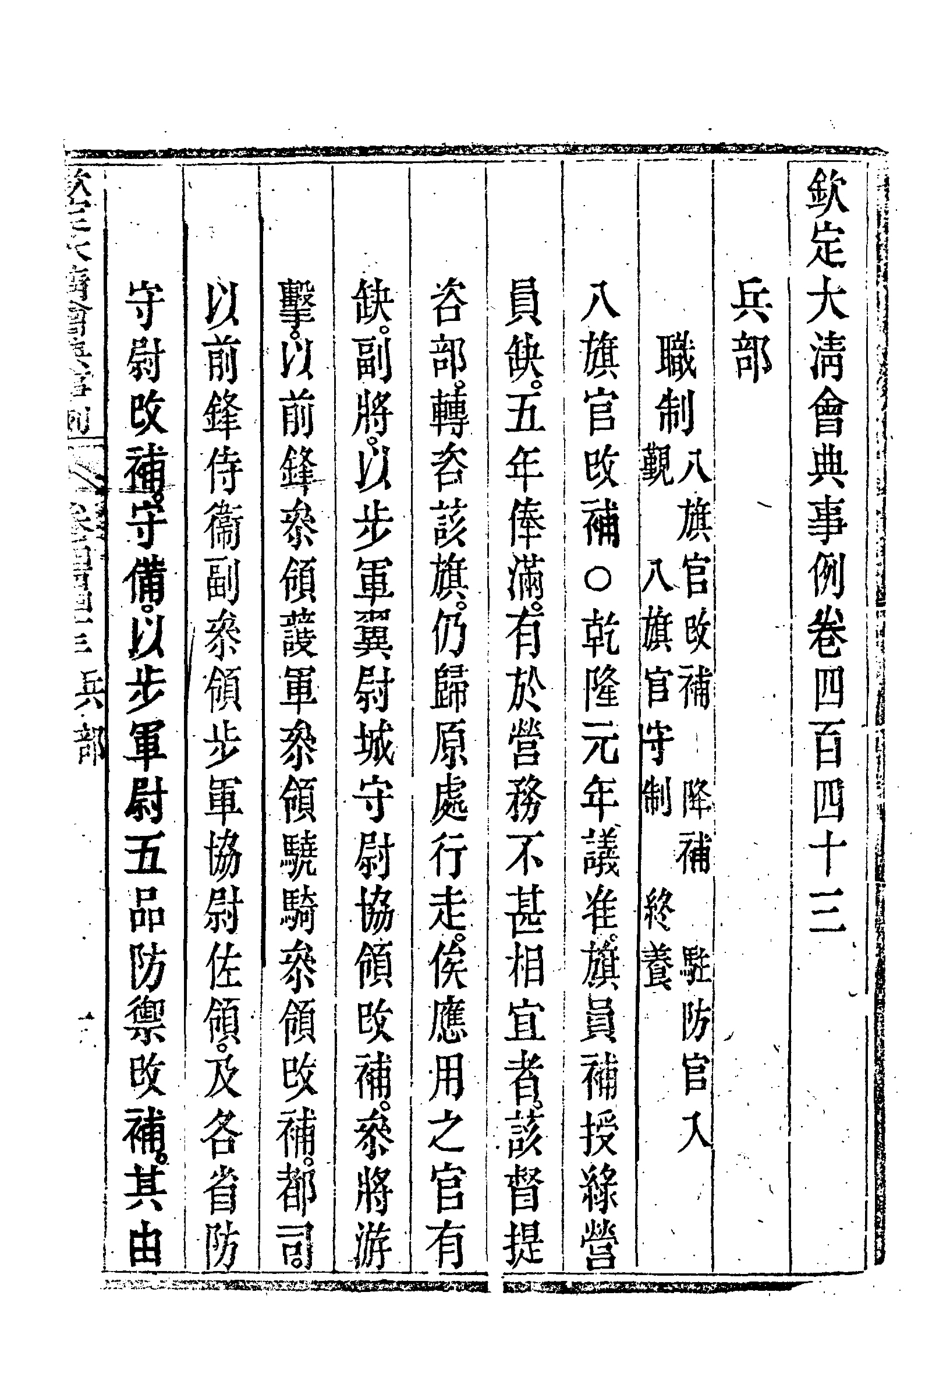 欽定大淸會典事例卷四百四十三
兵部
職制
八旗官改補　降補　駐防官入
觀　八旗官守制　終養
八旗官改補〇乾隆元年議准。旗員補授綠營
員缺。五年俸滿。有於營務不甚相宜者。該督提
咨部。轉咨該旗。仍歸原處行走。俟應用之官有
缺。副將。以步軍翼尉城守尉協領改補。叅將游
擊。以前鋒叅領護軍叅領驍騎叅領改補。都司。
以前鋒侍衞副叅領步軍協尉佐領。及各省防
守尉改補。守備。以步軍尉五品防禦改補。其由
欽定大淸會典事例　卷四百四十三　兵部　一